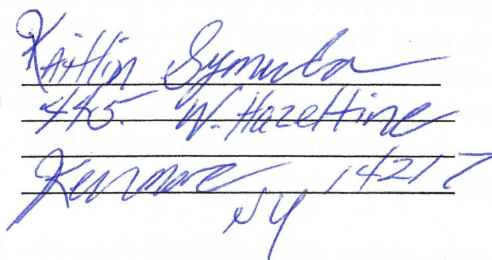 Kaitlin Symula
445. W. Hazeltine
Kenmore 14217
NY